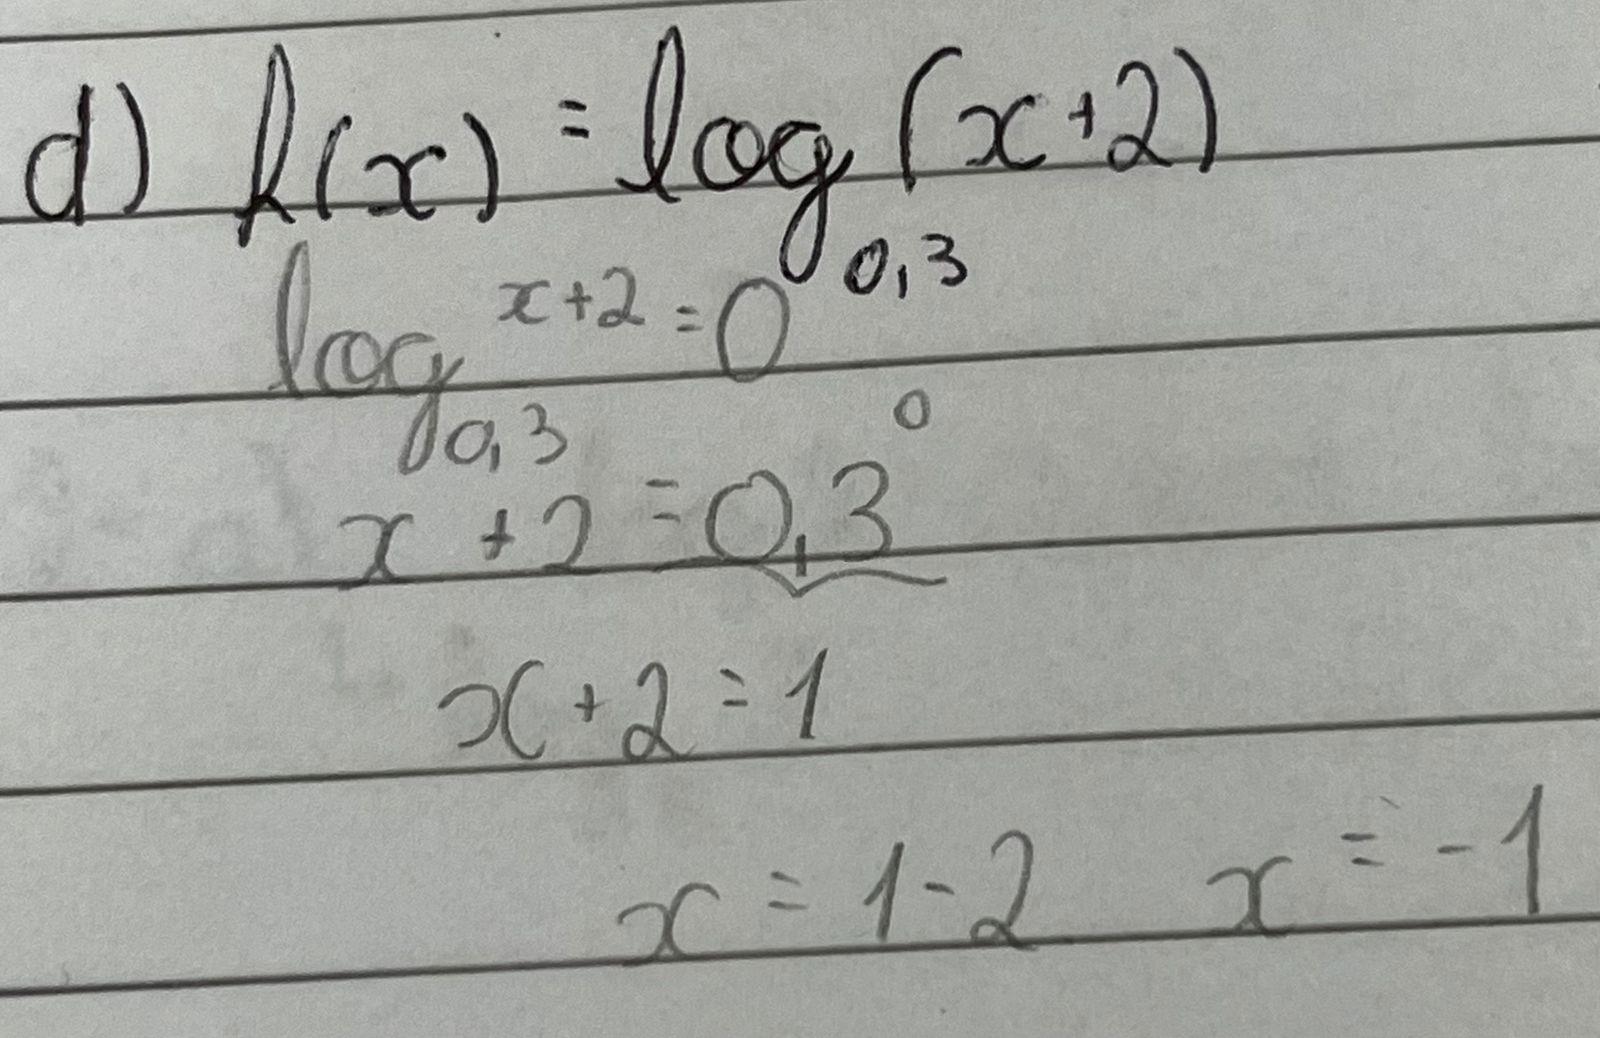 d) h(x) = log₀,₃ (x+2)
log₀,₃ x+2 = 0
x + 2 = 0,3⁰
x + 2 = 1
x = 1 - 2 x = -1